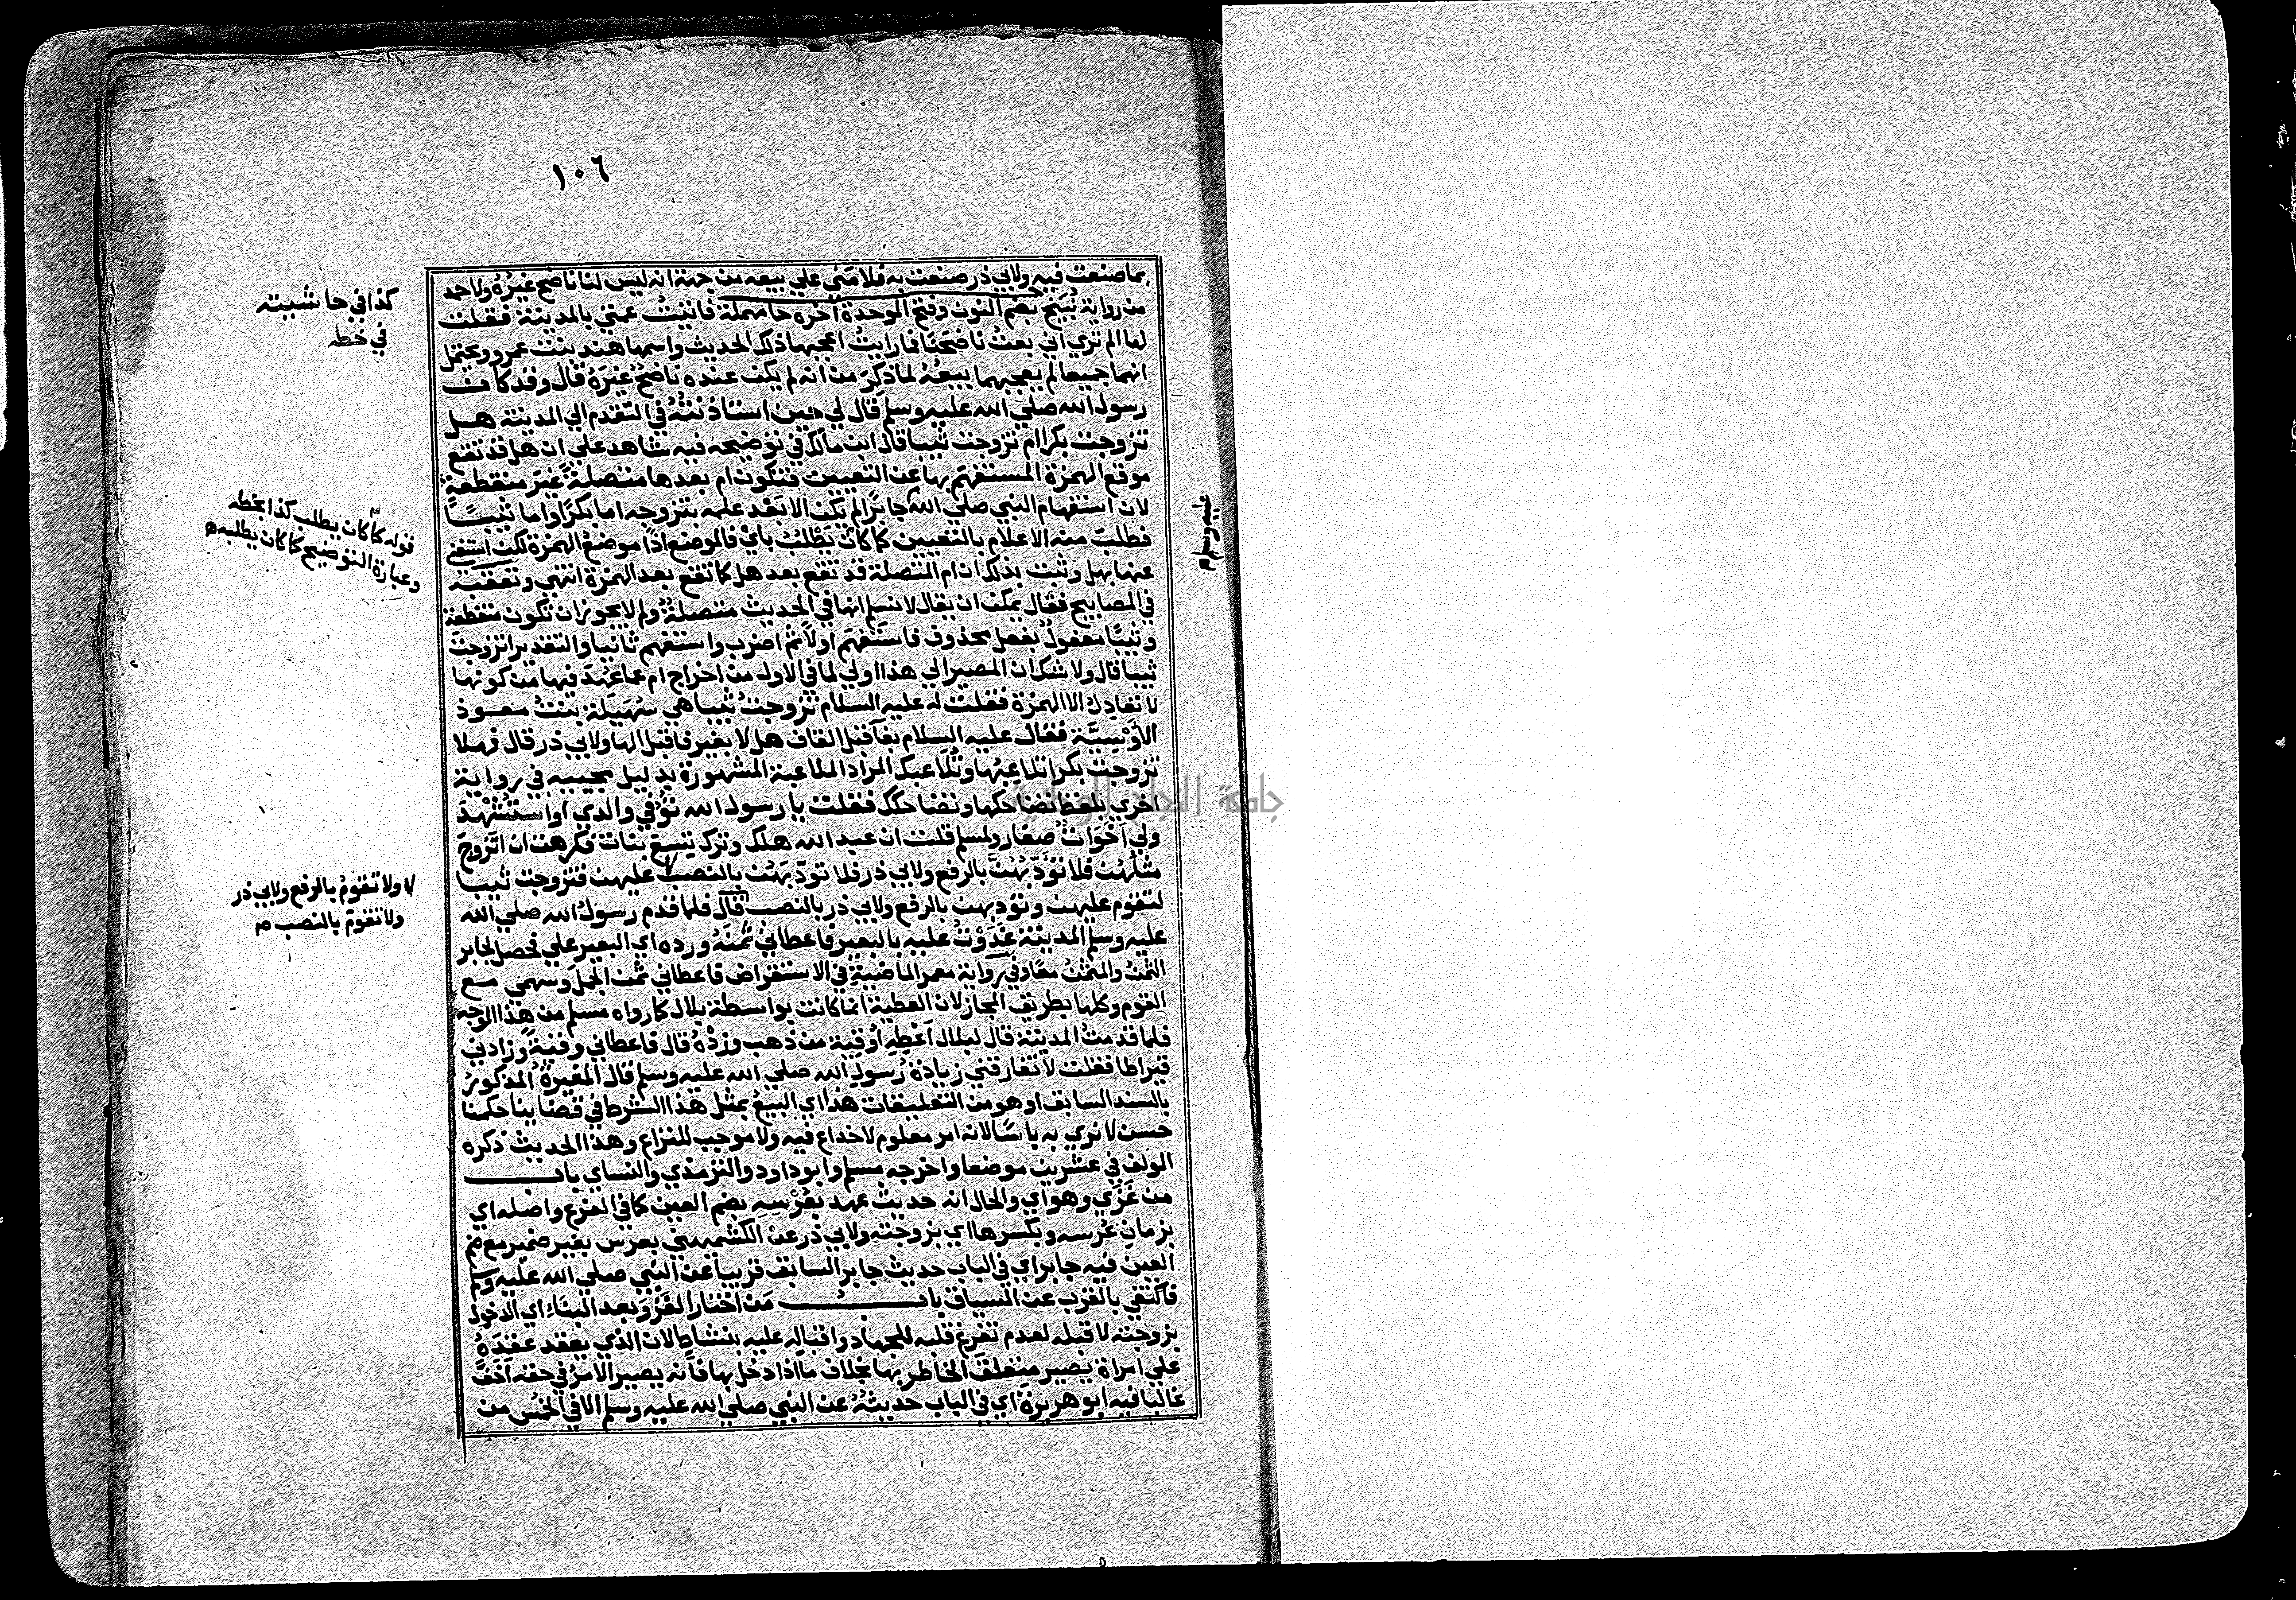 ١٠٦
بما صنعت فيه ولابي ذر صنعت به فلامني علي بيعه من جهة انه ليس لنا ناضح غيره ولاحمد
من رواية نبيح بضم النون وفتح الموحدة اخره حا مهملة فاتيت عمتي بالمدينة فقلت
لها الم تري اني بعت ناضحنا فما رايت اعجبها ذلك الحديث واسمها هند بنت عمرو ويحتمل
انهما جميعا لم يعجبهما بيعه لما ذكر من انه لم يكن عنده ناضح غيره قال وقد كان
رسول الله صلي الله عليه وسلم قال لي حين استاذنته في التقدم الي المدينة هل
تزوجت بكرا ام تزوجت ثيبا قال ابن مالك في توضيحه فيه شاهد علي ان هل قد تقع
موقع الهمزة المستفهم بها عن التعيين فتكون ام بعدها متصلة غير منقطعة
لان استفهام النبي صلي الله جابرا لم يكن الا بعد علمه بتزوجه اما بكرا واما ثيبا
فطلب منه الاعلام بالتعيين كما كان يطلب باي فالموضع اذا موضع الهمزة لكن استغني
عنها بهل وثبت بذلك ان ام المتصلة قد تقع بعد هل كما تقع بعد الهمزة انتهي وتعقبه
في المصابيح فقال يمكن ان يقال لا نسلم انها في الحديث متصلة ولم لا يجوز ان تكون منقطعة
وثيبا مفعول بفعل محذوف فاستفهم اولا ثم اضرب واستفهم ثانيا والتقدير اتزوجت
ثيبا قال ولا شك ان المصير الي هذا اولي لما في الاول من اخراج ام عما عهد فيها من كونها
لا تعادل الا الهمزة فقلت له عليه السلام تزوجت ثيبا هي سهيلة بنت معوذ
الاوسية فقال عليه السلام بفا قبل القاف هل لا بغير فا قبل الها ولابي ذر قال فهلا
تزوجت بكرا تلاعبها وتلاعبك المراد الملاعبة المشهورة بدليل مجيبه في رواية
اخري بلفظ تضاحكها وتضاحكك فقلت يا رسول الله توفي والدي او استشهد
ولي اخوات صغار ولمسلم قلت ان عبد الله هلك وترك تسع بنات فكرهت ان اتزوج
مثلهن فلا تؤدبهن بالرفع ولابي ذر فلا تودبهن بالنصب عليهن فتزوجت ثيبا
لتقوم عليهن وتؤدبهن بالرفع ولابي ذر بالنصب قال فلما قدم رسول الله صلي الله
عليه وسلم المدينة غدوت عليه بالبعير فاعطاني ثمنه ورده اي البعير علي فحصل لجابر
الثمن والمثمن معا وفي رواية معمر الماضية في الاستقراض فاعطاني ثمن الجمل وسهمي مع
القوم وكلها بطريق المجاز لان العطية انما كانت بواسطة بلال كما رواه مسلم من هذا الوجه
فلما قدمت المدينة قال لبلال اعطه اوقية من ذهب وزده قال فاعطاني وقية وزادني
قيراطا فقلت لا تفارقني زيادة رسول الله صلي الله عليه وسلم قال المغيرة المذكور
بالسند السابق او هو من التعليقات هذا اي البيع بمثل هذا الشرط في قضاينا حكمنا
حسن لا نري به باسا لانه امر معلوم لا خداع فيه ولا موجب للنزاع وهذا الحديث ذكره
المولف في عشرين موضعا واخرجه مسلم وابو داود والترمذي والنساي باب
من غزي وهو اي والحال انه حديث عهد بعرسه بضم العين كما في الفرع واصله اي
بزمان عرسه وبكسرها اي بزوجته ولابي ذر عن الكشميهني بعرس بغير ضمير مع ضم
العين فيه جابر اي في الباب حديث جابر السابق قريبا عن النبي صلي الله عليه وسلم
فاكتفي بالقرب عن السياق باب من اختار الغزو بعد البناء اي الدخول
بزوجته لا قبله لعدم تفرغ قلبه للجهاد واقباله عليه بنشاط لان الذي يعقد عقده
علي امراة يصير متعلق الخاطر بها بخلاف ما اذا دخل بها فانه يصير الامر في حقه اخف
غالبا فيه ابو هريرة اي في الباب حديثه عن النبي صلي الله عليه وسلم الاتي في الخمس من
كذا في حاشيته
في خطه
قوله كما كان يطلب كذا بخطه
وعبارة التوضيح كما كان يطلبه
عليه وسلم
ولا تقوم بالرفع ولابي ذر
ولا تقوم بالنصب
جامعة النجاح الوطنية